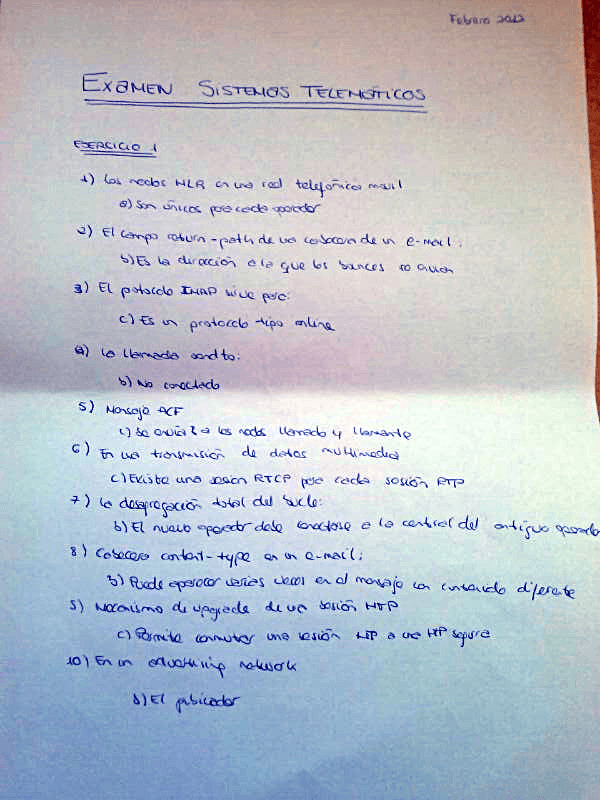 Febrero 2012
EXAMEN SISTEMAS TELEMÁTICOS
EJERCICIO 1
1) Los nodos HLR en una red telefónica móvil
a) Son únicos para cada operador
2) El campo return-path de una cabecera de un e-mail:
b) Es la dirección a la que los
3) El protocolo IMAP sirve para:
c) Es un protocolo tipo online
4) La llamada sendto:
b) No conectado
5) Mensaje ACF
c) Se envía a los nodos llamado y llamante
6) En una transmisión de datos multimedia
c) Existe una sesión RTCP para cada sesión RTP
7) La desagregación total del bucle:
b) El nuevo operador debe conectarse a la central del antiguo operador
8) Cabecera content-type en un e-mail:
b) Puede aparecer varias veces en el mensaje con contenido diferente
9) Mecanismo de upgrade de una sesión HTTP
c) Permite conmutar una sesión HTTP a una HTTP segura
10) En un advertising network
d) El publicador